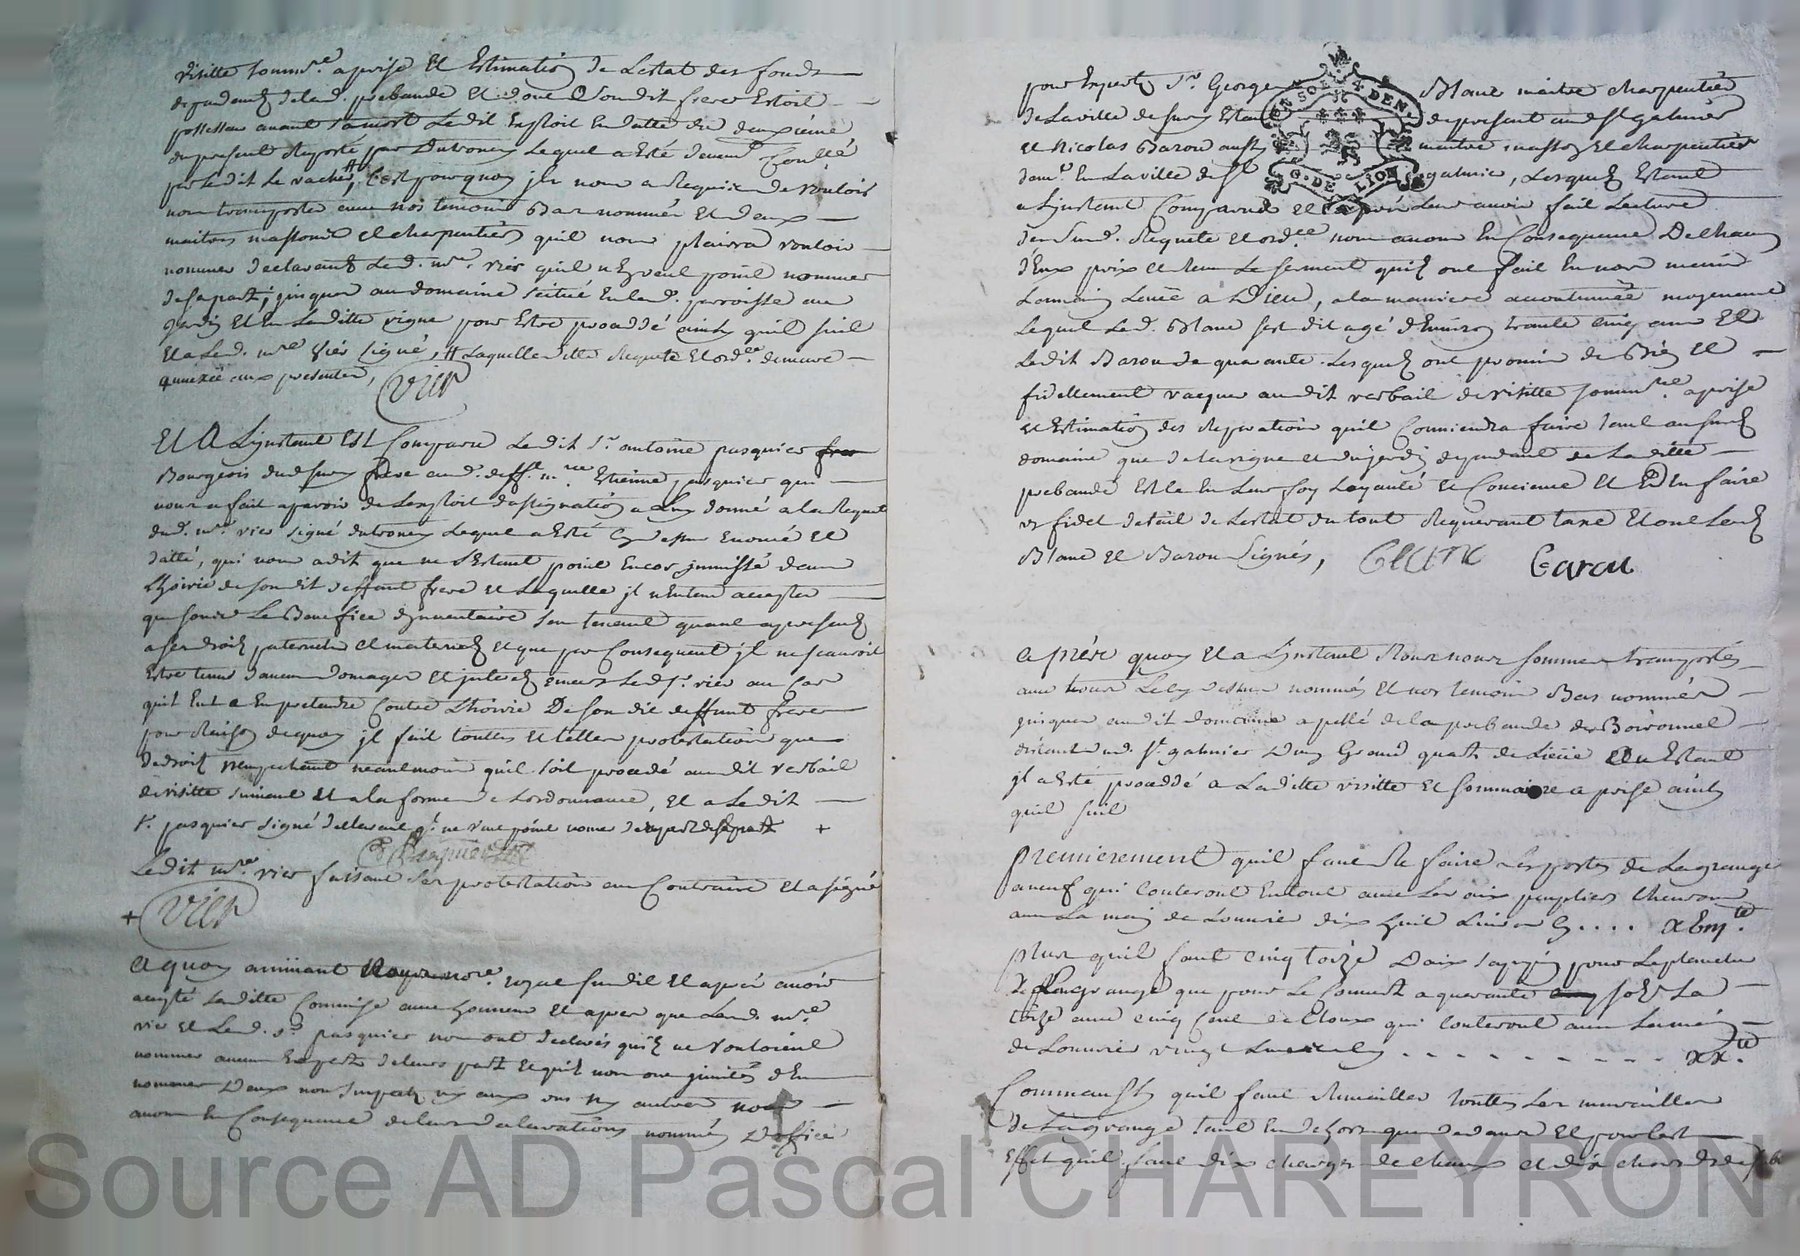 visitte somm.re aprise et Estimation de Lestat des fonds
dependent de lad. prebande et dont Son dit frere Estoit
possesseur avant sa mort Ledit Exploit En datte du deuxieme
du present Reporté par Dutroney Lequel a esté
par ledit Le vacher, C'est pourquoy jl nous a Requis de vouloir
nous transporter avec nos temoins Bas nommés et deux
maitres massons et charpentiers quil nous plairra vouloir
nommer declarant Led. m.re vier quil n'En veut point nommer
de sa part, jusques au domaine scitué En lad. parroisse au
jardin Et En Laditte vigne pour Estre procedé ainsy quil suit
Et a Led. m.re Vier Signé, # Laquelle ditte Requete Et ord.ce demeure
annexée aux presentes,
vier
Et A Linstant Est Comparu Ledit s.r antoine pasquier frer
Bourgeois dud. Sury frere aud. deff.t m.re Etienne pasquier qui
nous a fait aparoir de Lexploit dassignation a Luy donné a la Requete
dud. m.re vier signé dutroney Lequel a Esté Cy dessus Enoncé et
datté, qui nous a dit que ne s'Estant point Encor jmmissé dans
Lhoirie de son dit deffunt frere et Laquelle jl n'Entend accepter
que sous Le Benefice dinventaire sen tenant quant a present
a ses droits paternels et maternels et que par Consequent jl ne scauroit
Estre tenu d'aucun domages Et jnterets envers Led. s.r vier au Cas
quil Eut a En pretendre Contre Lhoirie De son dit deffunt frere
pour Raison de quoy jl fait touttes Et telles protestations que
de droit n'empechant neanmoins quil soit procedé audit verbail
de visitte suivant Et a la forme de Lordonnance, Et a Ledit
s.r pasquier signé declarant q.l ne veut point nomer dexpert de sa part +
Ledit m.re vier faisant ses protestations au Contraire Et a signé
+ vier
A quoy avisant Nous no.re royal susdit Et après avoir
accepté Laditte Commise avec honneur Et apres que Led. m.re
vier Et Led. s.r pasquier nous ont declarés quils ne vouloient
nommer aucun Expert de leurs part Et quils nous ont jnvités d'En
nommer Deux non suspects ny aux uns ny autres nous
avons En Consequence de leurs declarations nommés D'office
pour Experts S.r George Blanc maitre charpentier
de La ville de Sury Estant de present aud. St galmier
et Nicolas Barou aussy maitre masson et charpentier
dem.t En La ville de St galmier, Lesquels Estant
a Linstant Comparus et après Leur avoir fait Lecture
des susd. Requete et ord.ce nous avons En Consequence De chacun
d'Eux pris et Reçu Le serment quils ont fait En nos mains
Leur main Levée a Dieu, a la maniere accoutumée moyenant
Lequel Led. Blanc s'est dit agé d'Environ trante cinq ans Et
Ledit Barou de quarante. Lesquels ont promis de Bien et
fidellement vacquer audit verbail de visitte somm.re aprise
et Estimation des Reparations quil Conviendra faire tant au susd.
domaine que de la vigne et du jardin dependant de Laditte
prebande Et le En Leur foy Loyauté et Concience Et D'En faire
un fidel detail de Lestat du tout Requerant taxe Et ont Lesd.
Blanc et Barou Signés, Blanc Barou
SOLS 4 DEN.
G. DE LION
apres quoy Et a Linstant Nous nous sommes transportés
avec tous Les Cy dessus nommés Et nos temoins Bas nommés
jusques audit domaine apellé de la prebande de Boironnet
distant dud. St galmier D'un Grand quart de Lieüe Et y Estant
jl a Esté procedé a Laditte visitte Et sommaire aprise ainsy
quil suit
Premierement quil faut Refaire Les portes de La grange
a neuf qui Couteront En tout avec Les aix peupliers
avec La main de Louvrier dix huit Livres Cy.... xviij.te
Plus quil faut cinq toize D'aix sapin pour Le plancher
de La grange que pour Le Couvert a quarante sols La
toize avec cinq Cent de Cloux qui Couteront avec La main
de Louvrier vingt Livres Cy - - - - - - - - - xx.te
Comme aussy quil faut Remailler touttes Les murailles
de La grange tant En dehors que dedans Et pour Cest
Effet quil faut dix charges de chaux et dix chars de sable
Source AD Pascal CHAREYRON